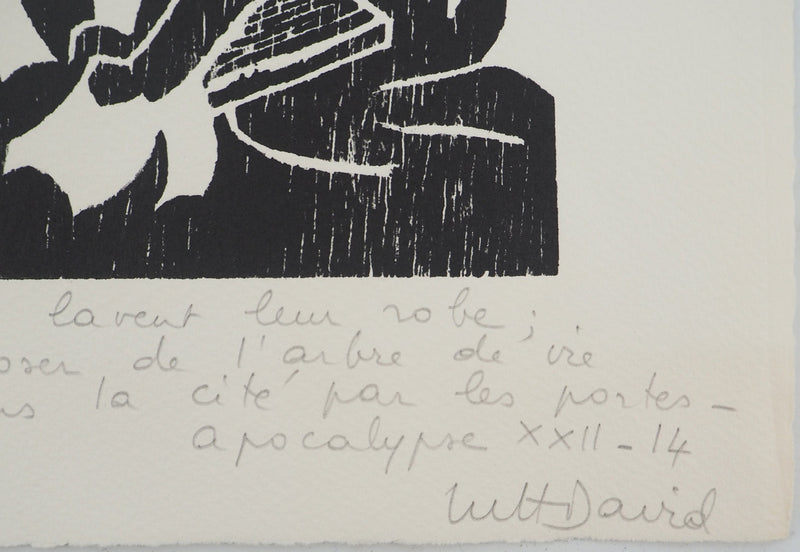 lavent leur robe ;
oser de l'arbre de vie
ns la cité par les portes -
apocalypse XXII - 14
David